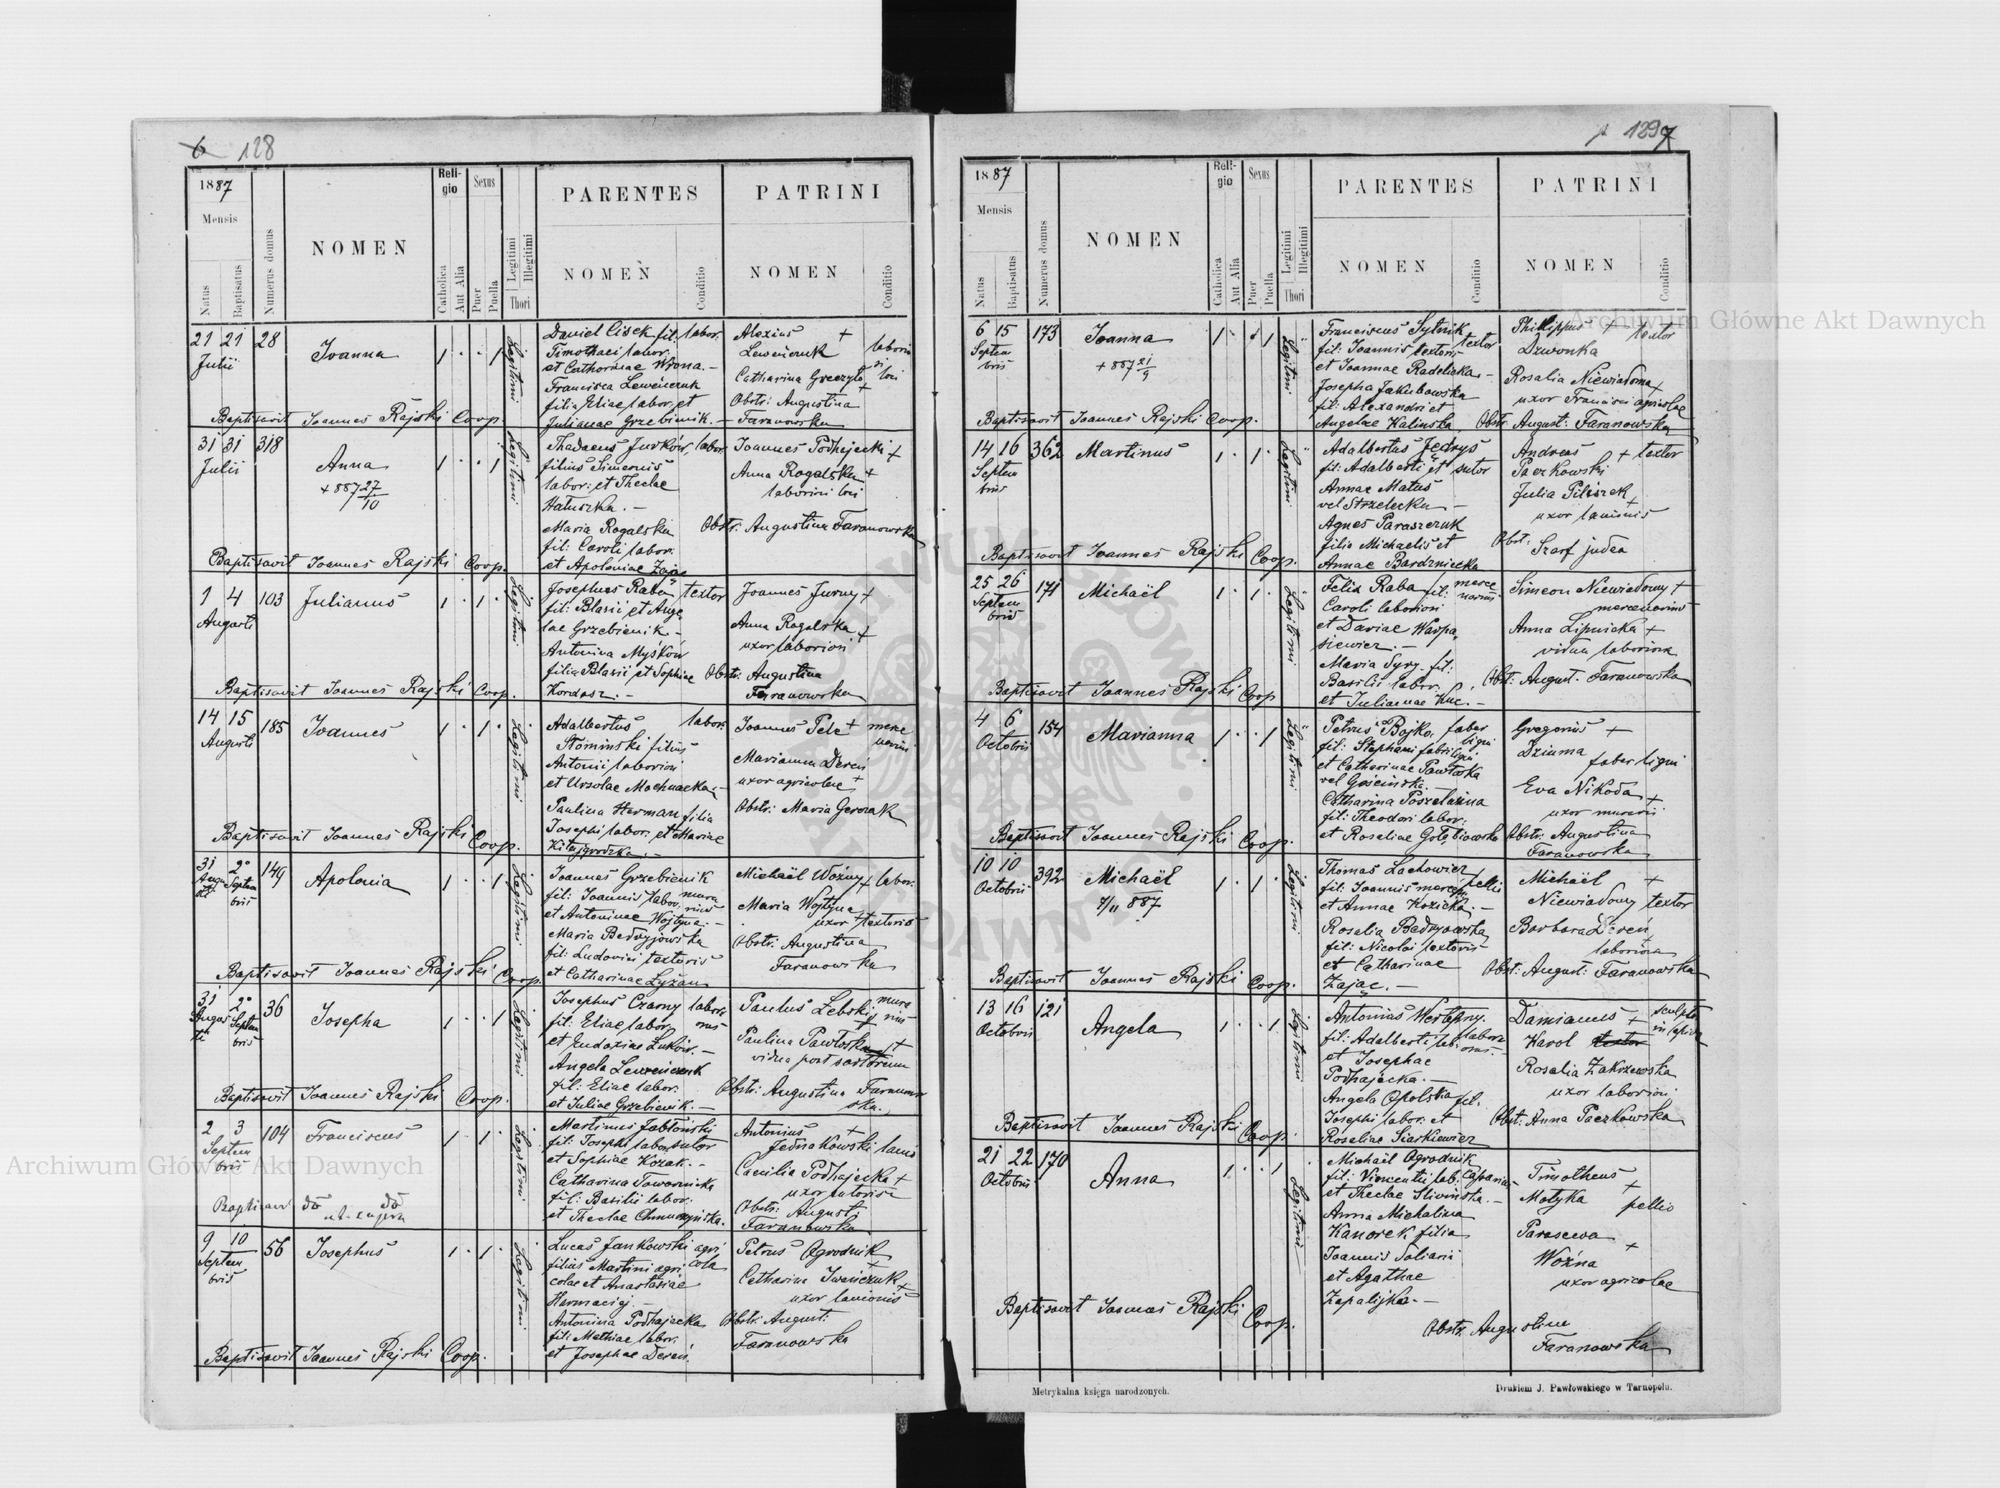 6 128
1887
Mensis
Natus
Baptisatus
Numerus domus
NOMEN
Religio
Catholica
Aut Alia
Sexus
Puer
Puella
Legitimi
Illegitimi
Thori
PARENTES
NOMEN
Conditio
PATRINI
NOMEN
Conditio
21 21 28
Julii
Joanna
1 1
Legitimi
Daniel Cisek fil. labor.
Timothaei labor.
et Catharinae Wrona.
Francisca Leweńczuk
filia Eliae labor. et
Julianae Grzebienik.
Alexius +
Leweńczuk
Catharina
Obstr: Augustina
Faranowska
Baptisavit Joannes Rajski Coop.
31 31 318
Julii
Anna
+ 887 27/10
1 1
Legitimi
Thadaeus labor.
filius Simeonis
labor: et Theclae
Hatuszka.
Maria Rogalska
fil: Caroli labor.
et Apoloniae Zając
Joannes Podhajecki +
Anna Rogalska +
Obstr: Augustina Faranowska
Baptisavit Joannes Rajski Coop.
1 4 103
Augusti
Julianus
1 1
Legitimi
Josephus Raba textor
fil: Blasii et Ange
lae Grzebienik.
Antonina Myśków
filia Blasii et Sophiae
Kordasz.
Joannes Jurny +
Anna Rogalska +
uxor laborioni
Obstr: Augustina
Faranowska
Baptisavit Joannes Rajski Coop.
14 15 185
Augusti
Joannes
1 1
Legitimi
Adalbertus labor.
Słomiński filius
Antonii laborioni
et Ursolae Machnacka
Paulina Herman filia
Josephi labor. et Mariae
Joannes Pelc + merce
narius
Marianna Dereń
uxor agricolae +
Obstr: Maria
Baptisavit Joannes Rajski Coop.
31 2 149
Augusti Septembris
Apolonia
1 1
Legitimi
Joannes Grzebienik
fil: Joannis labor.
et Antoninae Wojtyna.
Maria Bedryjowska
fil: Ludovici textoris
et Catharinae Łyżan
Michaël Woźny + labor.
Maria Wojtyna
uxor textoris
Obstr: Augustina
Faranowska
Baptisavit Joannes Rajski Coop.
31 2 36
Augusti Septembris
Josepha
1 1
Legitimi
Josephus Czarny labor.
fil: Eliae labor.
et Eudoxiae Luków.
Angela Leweńczuk
fil: Eliae labor.
et Juliae Grzebienik.
Paulus Zebski
Paulina Pawłoska +
vidua post sartorem
Obstr: Augustina Faranow
ska.
Baptisavit Joannes Rajski Coop.
2 3 104
Septembris
Franciscus
1 1
Legitimi
Martinus Jabłoński
fil: Josephi labor. sutor
et Sophiae Kozak.
Catharina Towarnicka
fil: Basilii labor.
et Theclae
Antonius +
Jednakowski lanio
Caecilia Podhajecka +
uxor sutoris
Obstr: August:
Faranowska
Baptisavit do do
ut supra
9 10 56
Septembris
Josephus
1 1
Legitimi
Lucas Jankowski agri
filius Martini agri cola
colae et Anastasiae
Harmacij
Antonina Podhajecka
fil: Mathiae labor.
et Josephae Dereń.
Petrus Ogrodnik
+
Catharina Iwańczuk +
uxor lanionis
Obstr: August:
Faranowska
Baptisavit Joannes Rajski Coop.
129 7
1887
Mensis
Natus
Baptisatus
Numerus domus
NOMEN
Religio
Catholica
Aut Alia
Sexus
Puer
Puella
Legitimi
Illegitimi
Thori
PARENTES
NOMEN
Conditio
PATRINI
NOMEN
Conditio
6 15 173
Septembris
Joanna
+ 887 21/9
1 1
Legitimi
Franciscus Sytnik textor
fil: Joannis textoris
et Joannae Radelicka.
Josepha Jakubowska
fil: Alexandri et
Angelae Kalinska
Philippus + textor
Dzwonka
Rosalia Niewiadoma +
uxor Francisci agricolae
Obstr: August: Faranowska
Baptisavit Joannes Rajski Coop.
14 16 362
Septembris
Martinus
1 1
Legitimi
Adalbertus Jędrys
fil: Adalberti et sutor
Annae Matus
vel Strzelecka
Agnes Paraszczuk
filia Michaelis et
Annae Bardznicka
Andreas + textor
Paczkowski
Julia Piliszek +
uxor lanionis
Obst: Szarf judea
Baptisavit Joannes Rajski Coop.
25 26 171
Septembris
Michaël
1 1
Legitimi
Felix Raba fil: merce
narius
Caroli laborioni
et Dariae Warpa
siewicz.
Maria Syry. fil:
Basilii labor.
et Julianae Kuc.
Simeon Niewiadomy +
mercenarius
Anna Lipnicka +
vidua laboriosa
Obst: August. Faranowska
Baptisavit Joannes Rajski Coop
4 6 154
Octobris
Marianna
1 1
Legitimi
Petrus Bojko, faber
ligni
fil: Stephani fabri ligni
et Catharinae Pawłoska
vel Gościńska.
Catharina Poszelazna
fil: Theodori labor:
et Rosaliae
Gregorius +
Dziuma
faber ligni
Eva Nikoda +
uxor murarii
Obstr: Augustina
Faranowska
Baptisavit Joannes Rajski Coop.
10 10 392
Octobris
Michaël
7/11 887
1 1
Legitimi
Thomas Lachowicz
fil: Joannis
et Annae Kozicka.
Rosalia Bedryowska
fil: Nicolai textoris
et Catharinae
Zając.
Michaël +
Niewiadomy textor
Barbara Dereń
laboriosa
Obst: August: Faranowska
Baptisavit Joannes Rajski Coop.
13 16 121
Octobris
Angela
1 1
Legitimi
Antonius Wertepny.
fil: Adalberti
et Josephae
Podhajecka.
Angela Opolska fil.
Josephi labor. et
Rosaliae Siarkiewicz
Damianus +
Karol textor
Rosalia Zakrzewska
uxor laborioni
Obst: Anna Paczkowska
Baptisavit Joannes Rajski Coop.
21 22 170
Octobris
Anna
1 1
Legitimi
Michaël Ogrodnik
fil: Vincentii lab.
et Theclae Śliwińska.
Anna Michalina
Kanorek filia
Joannis
et Agathae
Zapalijka.
Timotheus +
Motyka pellio
Parascewa +
Woźna
uxor agricolae
Obstr. Augustina
Faranowska
Baptisavit Joannes Rajski Coop.
Metrykalna księga narodzonych.
Drukiem J. Pawłowskiego w Tarnopolu.
Archiwum Główne Akt Dawnych
Archiwum Główne Akt Dawnych
ARCHIWUM GŁÓWNE AKT DAWNYCH